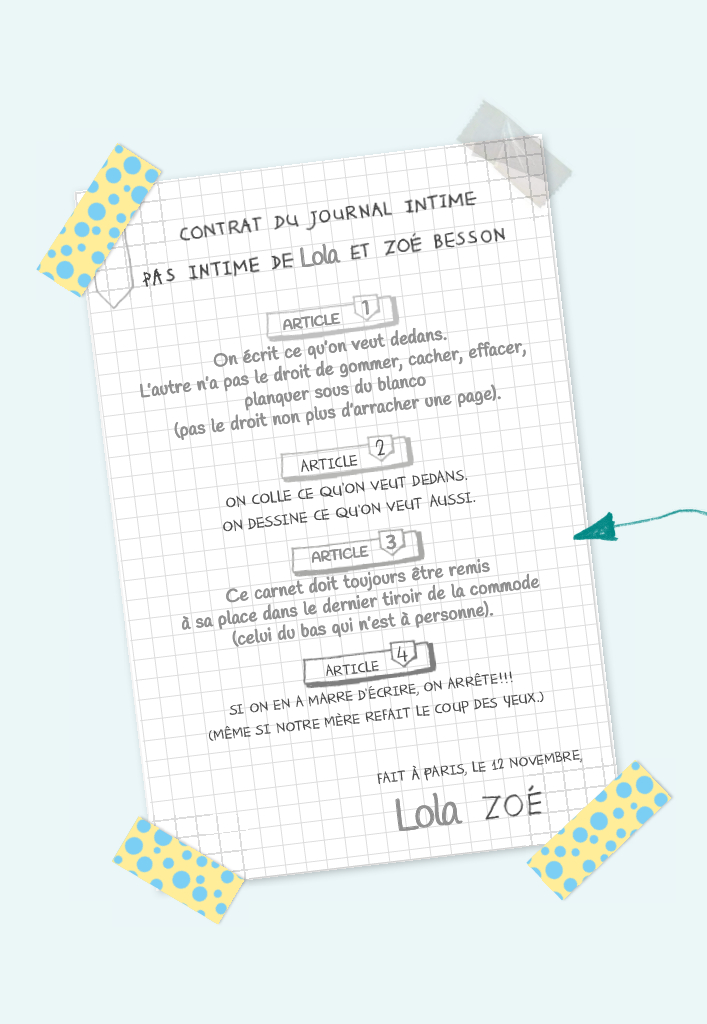 CONTRAT DU JOURNAL INTIME
PAS INTIME DE Lola ET ZOÉ BESSON
ARTICLE 1
On écrit ce qu'on veut dedans.
L'autre n'a pas le droit de gommer, cacher, effacer,
planquer sous du blanco
(pas le droit non plus d'arracher une page).
ARTICLE 2
ON COLLE CE QU'ON VEUT DEDANS.
ON DESSINE CE QU'ON VEUT AUSSI.
ARTICLE 3
Ce carnet doit toujours être remis
à sa place dans le dernier tiroir de la commode
(celui du bas qui n'est à personne).
ARTICLE 4
SI ON EN A MARRE D'ÉCRIRE, ON ARRÊTE!!!
(MÊME SI NOTRE MÈRE REFAIT LE COUP DES YEUX.)
FAIT À PARIS, LE 12 NOVEMBRE,
Lola ZOÉ